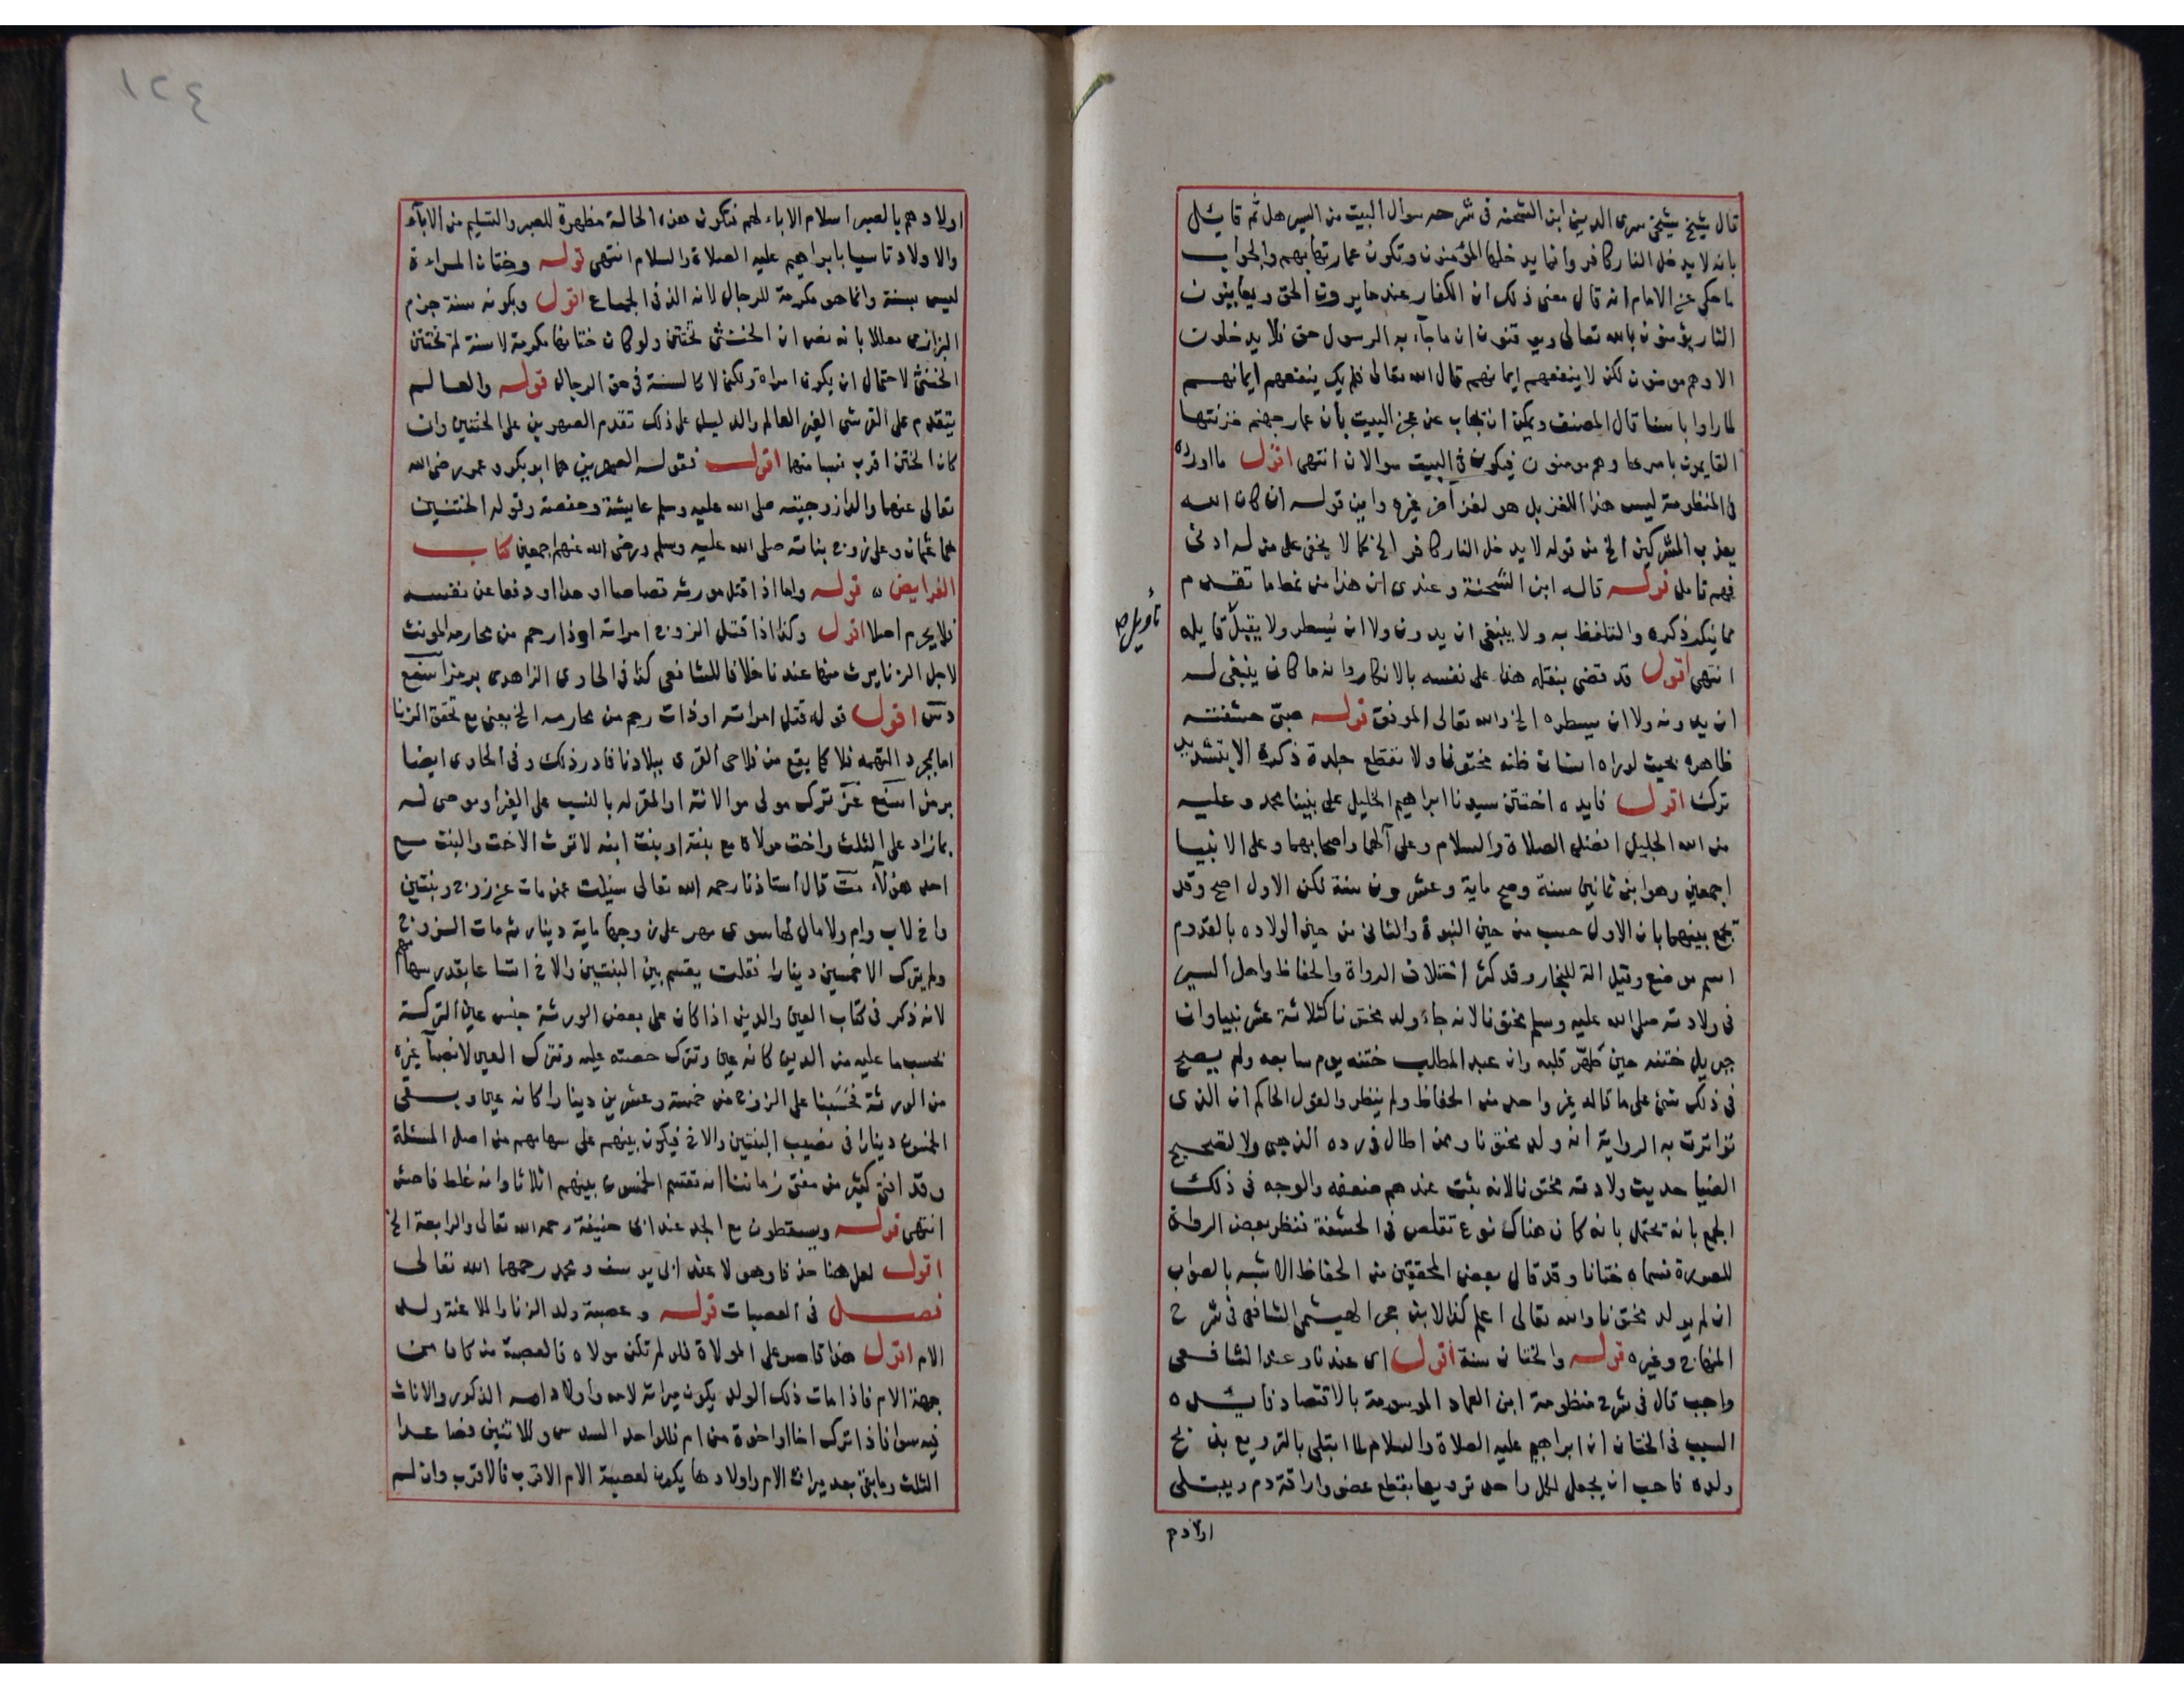 قال شيخ شيخى سرى الدين ابن الشحنه فى شرحه سوال البيت من السير هل ثم قايل
بانه لا يدخل النار كافر وانما يدخلها المؤمنون وتكون عمارتها بهم والجواب
ما حكى عن الامام انه قال معنى ذلك ان الكفار عند ما يروت الحق ويعاينون
النار يؤمنون بالله تعالى ويوقنون ان ما جاء به الرسول حق فلا يدخلون
الا وهم مومنون لكن لا ينفعهم ايمانهم قال الله تعالى فلم يك ينفعهم ايمانهم
لما راوا باسنا قال المصنف ويمكن ان يجاب عن عجز البيت بأن عمار جهنم خزنتها
القايمون بامرها وهم مومنون فيكون فى البيت سوالان انتهى اقول ما اورده
فى المنظومة ليس هذا اللغز بل هو لغز آخر غيره واين قوله ان كان الله
يعذب المشركين الخ من قوله لا يدخل النار كافر الخ كما لا يخفى على من له ادنى
فهم تامل قوله قاله ابن الشحنة وعندى ان هذا من نمط ما تقدم
مما ينكر ذكره والتلفظ به ولا ينبغى ان يدون ولا ان يسطر ولا يقبل قايله
تأويل صح
انتهى اقول قد قضى بنقله هذا على نفسه بالانكار وانه ما كان ينبغى له
ان يدونه ولا ان يسطره الخ والله تعالى الموفق قوله صبىّ حشفته
ظاهره بحيث لو راه انسان ظنه مختونا ولا تقطع جلدة ذكره الا بتشديد
ترك اقول فايده اختتن سيدنا ابراهيم الخليل على نبينا محمد وعليه
من الله الجليل افضل الصلاة والسلام وعلى آلهما واصحابهما وعلى الانبيا
اجمعين وهو ابن ثمانين سنة وصح ماية وعشرون سنة لكن الاول اصح وقد
يجمع بينهما بان الاول حسب من حين النبوة والثانى من حين الولاده بالقدوم
اسم موضع وقيل الة للنجار وقد كثر اختلاف الرواة والحفاظ واهل السير
فى ولادته صلى الله عليه وسلم مختونا لانه جاء ولد مختونا كثلاثة عشر نبيا وان
جبريل ختنه حين طهّر قلبه وان عبد المطلب ختنه يوم سابعه ولم يصح
فى ذلك شئ على ما قاله غير واحد من الحفاظ ولم ينظروا لقول الحاكم ان الذى
تواترت به الرواية انه ولد مختونا وممن اطال فى رده الذهبى ولا لتصحيح
الضيا حديث ولادته مختونا لانه ثبت عندهم ضعفه والوجه فى ذلك
الجمع بانه يحتمل بانه كان هناك نوع تقلص فى الحشفة فنظر بعض الرواة
للصورة فسماه ختانا وقد قال بعض المحققين من الحفاظ الاشبه بالصواب
ان لم يولد مختونا والله تعالى اعلم كذا لابن حجر الهيتمى الشافعى فى شرح
المنهاج وغيره قوله والختان سنة اقول اى عندنا وعند الشافعى
واجب قال فى شرح منظومة ابن العماد الموسومة بالاقتصاد فايده
السبب فى الختان ان ابراهيم عليه الصلاة والسلام لما ابتلى بالترويع بذبح
ولده فاحب ان يجعل لكل واحد ترويعا بقطع عضو واراقة دم ويبتلى
اولادهم
اولادهم بالصبر اسلام الاباء لهم فتكون هذه الحالة مظهرة للصبر والتسليم من الابآء
والاولاد تاسيا بابراهيم عليه الصلاة والسلام انتهى قوله وختان المراءة
ليس بسنة وانما هو مكرمة للرجال لانه الذ فى الجماع اقول وبكونه سنة جزم
البزازى معللا بانه نص ان الخنثى تختتن ولو كان ختانها مكرمة لا سنة لم تختتن
الخنثى لاحتمال ان يكون امراة ولكن لا كالسنة فى حق الرجال قوله والعالم
يتقدم على القرشى الغير العالم والدليل على ذلك تقدم الصهرين على الختنين وان
كان الختن اقرب نسبا منها اقول فقوله الصهرين هما ابو بكر وعمر رضى الله
تعالى عنهما والدا زوجيته صلى الله عليه وسلم عايشة وحفصة وقوله الختنين
هما عثمان وعلى زوج بناته صلى الله عليه وسلم ورضى الله عنهم اجمعين كتاب
الفرايض ه قوله واما اذا قتل مورثه قصاصا او حدا او دفعا عن نفسه
فلا يحرم اصلا اقول وكذا اذا قتل الزوج امراته او ذا رحم من محارمه المونث
لاجل الزنا يرث منها عندنا خلافا للشافعى كذا فى الحاوى الزاهدى برمز
اقول قوله قتل امراته او ذات رحم من محارمه الخ يعنى مع تحقق الزنا
اما بمجرد التهمه فلا كما يقع من فلاحى القرى ببلادنا فادر ذلك وفى الحاوى ايضا
برمز ترك مولى موالاته او المقر له بالنسب على الغير او موصى له
بما زاد على الثلث واخت مولاه مع بنته او بنت ابنه لا ترث الاخت والبنت مع
احد هؤلاء قال استاذنا رحمه الله تعالى سئلت عمن مات عن زوج وبنتين
واخ لاب وام ولا مال لها سوى مهر على زوجها ماية دينار ثم مات الزوج
ولم يترك الا خمسين دينارا فقلت يقسم بين البنتين والاخ اتساعا بقدر سهامهم
لانه ذكر فى كتاب العين والدين اذا كان على بعض الورثة جنس عين التركة
يحسب ما عليه من الدين كانه عين وتترك حصته عليه وتترك العين لانصباء غيره
من الورثة فحَسَبنا على الزوج من خمسة وعشرين دينارا كانه عين وبقى
الخمسون دينارا فى نصيب البنتين والاخ فيكون بينهم على سهامهم من اصل المسئلة
وقد افتى كثير من مفتى زماننا انه تقسم الخمسون بينهم اثلاثا وانه غلط فاحش
انتهى قوله ويسقطون مع الجد عند ابى حنيفة رحمه الله تعالى والرابعة الخ
اقول لعل هنا حذفا وهو لا عند ابى يوسف ومحمد رحمهما الله تعالى
فصل فى العصبات قوله وعصبة ولد الزنا والملاعنة ولد
الام اقول هذا قاصر على المولاة فلو لم تكن مولاه فالعصبة من كان من
جهة الام فاذا مات ذلك الولد يكون ميراثه لامه واولاد امه الذكور والاناث
فيه سوا فاذا ترك اخا او اخوة من ام فللواحد السدس وللاثنين فصاعدا
الثلث وما بقى بعد ميراث الام واولادها يكون لعصبة الام الاقرب فالاقرب وان لم